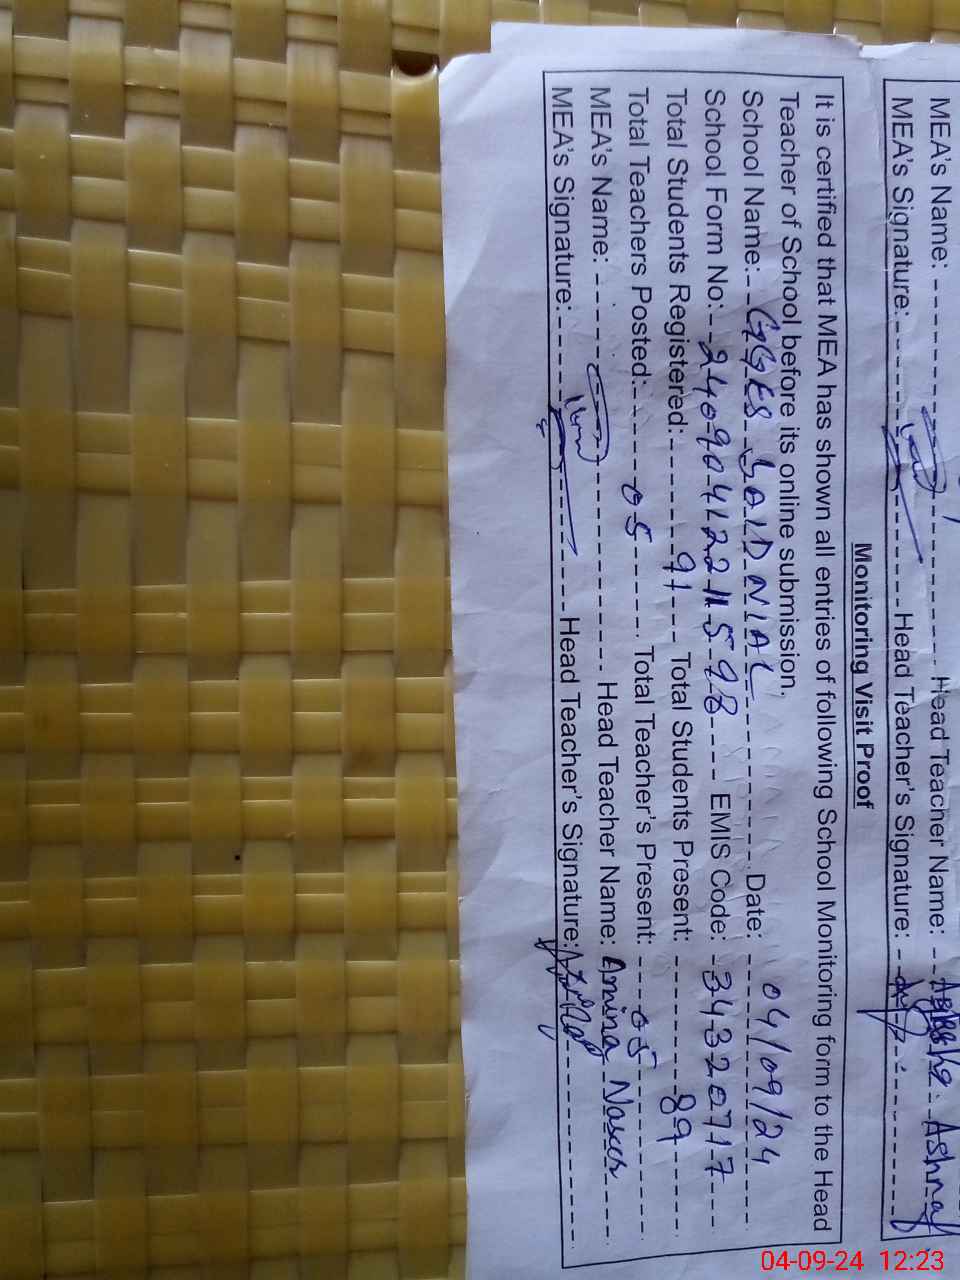 MEA's Name: Head Teacher Name: Ashraf
MEA's Signature: Head Teacher's Signature:
Monitoring Visit Proof
It is certified that MEA has shown all entries of following School Monitoring form to the Head
Teacher of School before its online submission.
School Name: GGES SAID NIAL Date: 04/09/24
School Form No: EMIS Code: 34320717
Total Students Registered: 91 Total Students Present: 89
Total Teachers Posted: 05 Total Teacher's Present: 05
MEA's Name: Head Teacher Name: Amina
MEA's Signature: Head Teacher's Signature:
04-09-24 12:23